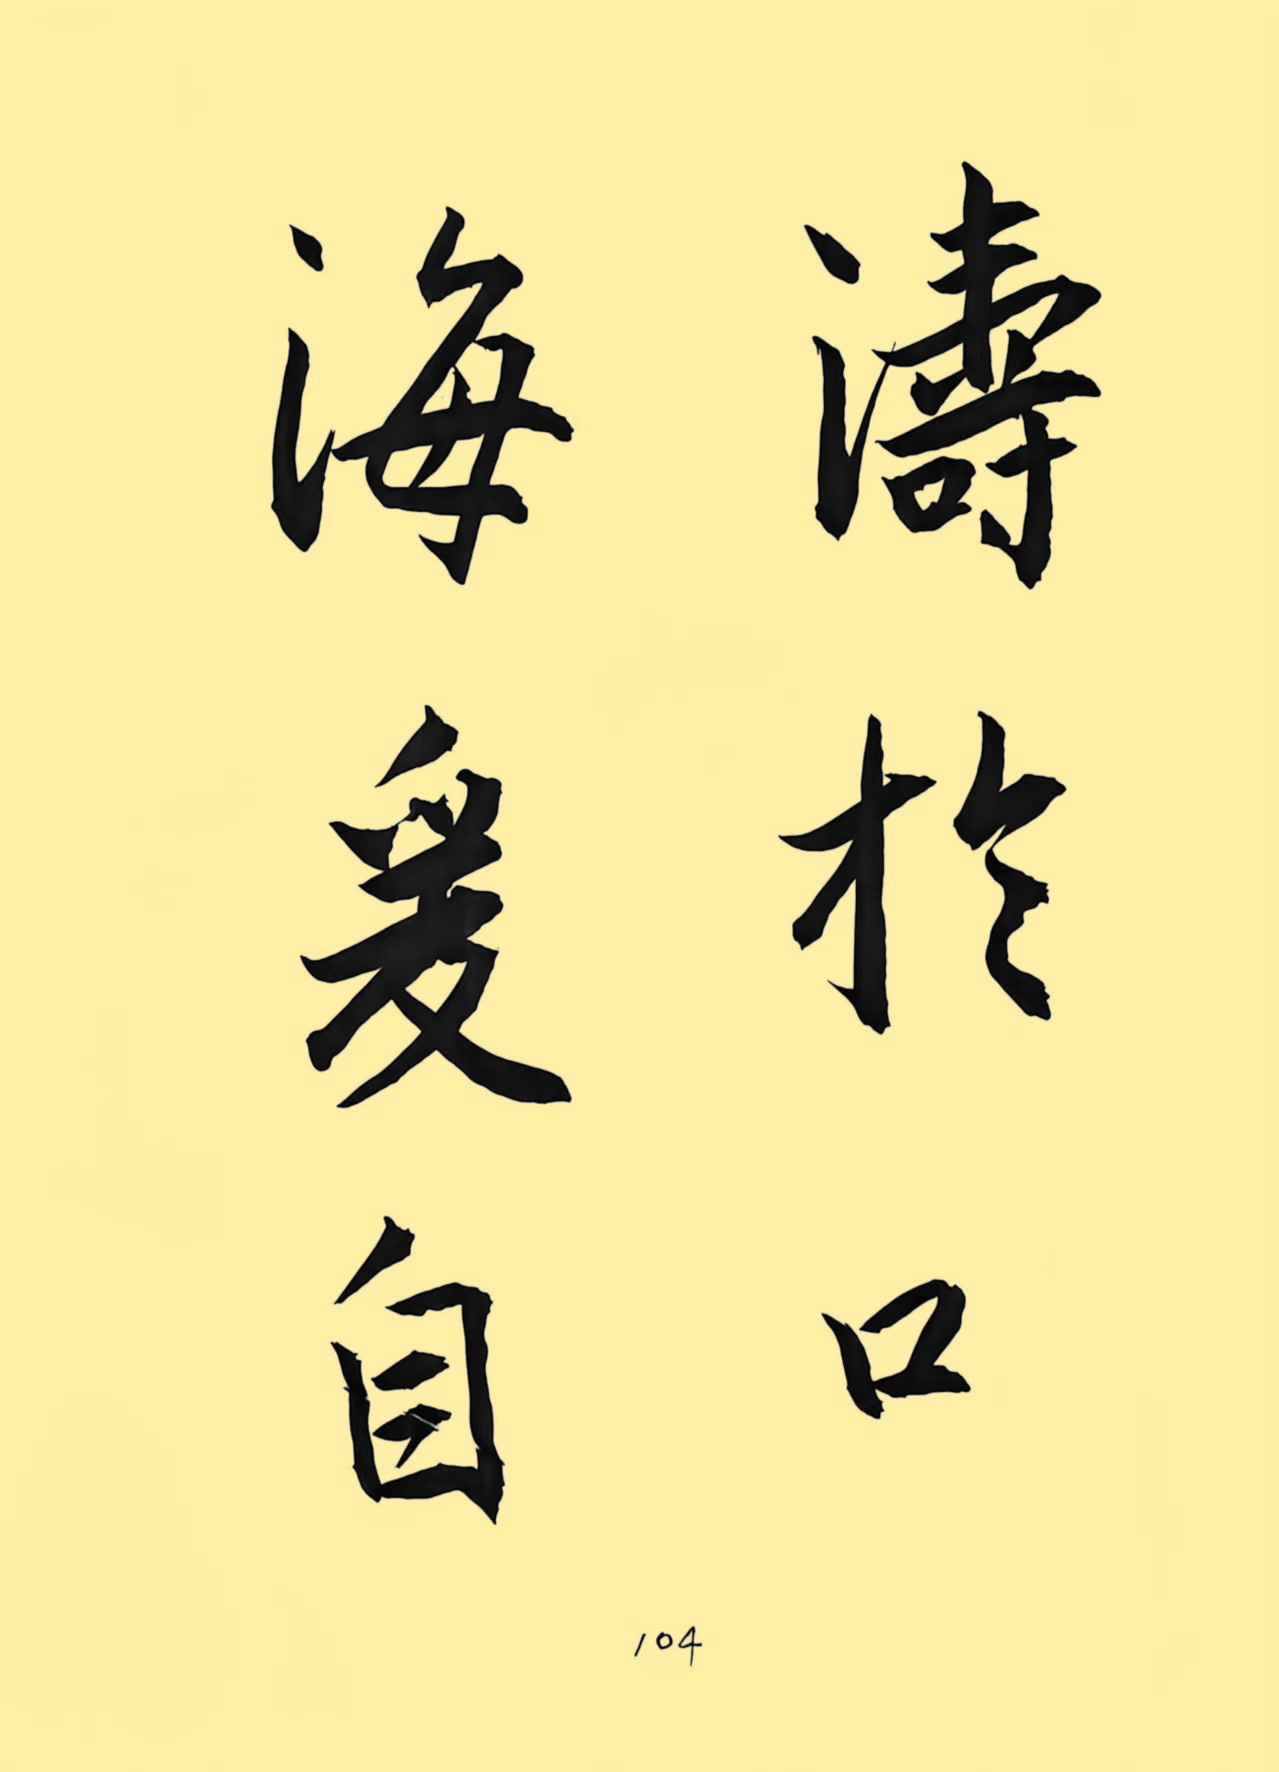 濤於口
海爰自
104